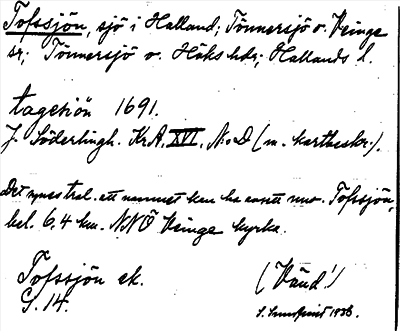 Tofssjön, sjö i Halland; Tönnersjö o. Veinge
sr; Tönnersjö o. Höks hdr; Hallands l.
tagesiön 1691.
J. Söderlingh. Kr.A. XVI. N:o D (m. kartbeskr.).
Det synes tral. att namnet kan ha avsett nuv. Tofssjön,
bel. 6,4 km. NNÖ Veinge kyrka.
Tofssjön ek.
G. 14.
(Vänd!)
S. 1936.